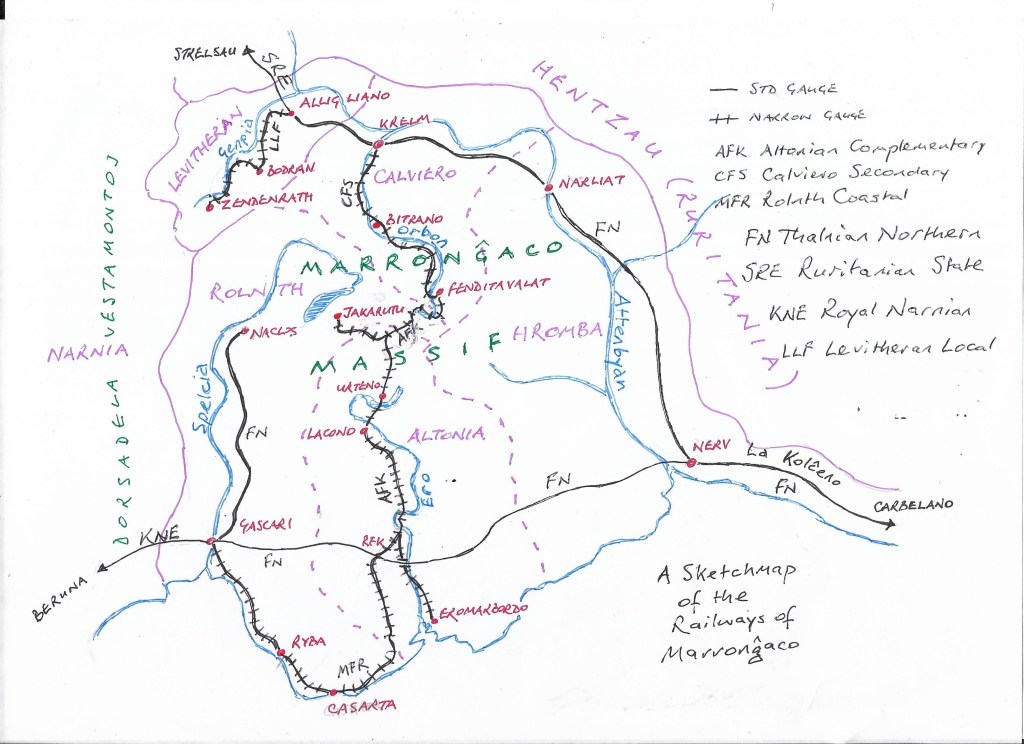 STRELSAU
SRE
HENTZAU (RURITANIA)
STD GAUGE
NARROW GAUGE
AFK Altonian Complementary
CFS Calviero Secondary
MFR Rolnth Coastal
FN Thalnian Northern
SRE Ruritanian State
KNE Royal Narnian
LLF Levitheran Local
ALLIGLIANO
LEVITHERAN
Genpia
LLF
KRELM
BODRAN
ZENDENRATH
CALVIERO
CFS
NARLIAT
BITRANO
Orbon
FN
DORSA DE LA VESTAMONTOJ
MARRONĜACO
ROLNTH
FENDITAVALAT
JAKARUTU
NACLOS
AFK
HROMBA
Attenbyan
NARNIA
MASSIF
URTENO
Spelcia
ILACOND
ALTONIA
FN
NERV
La Kolĉero
AFK
Ero
FN
FN
CARBELANO
KNE
GASCARI
FN
RFK
BERUNA
EROMARBORDO
RYBA
MFR
CASARTA
A Sketchmap
of the
Railways of
Marronĝaco